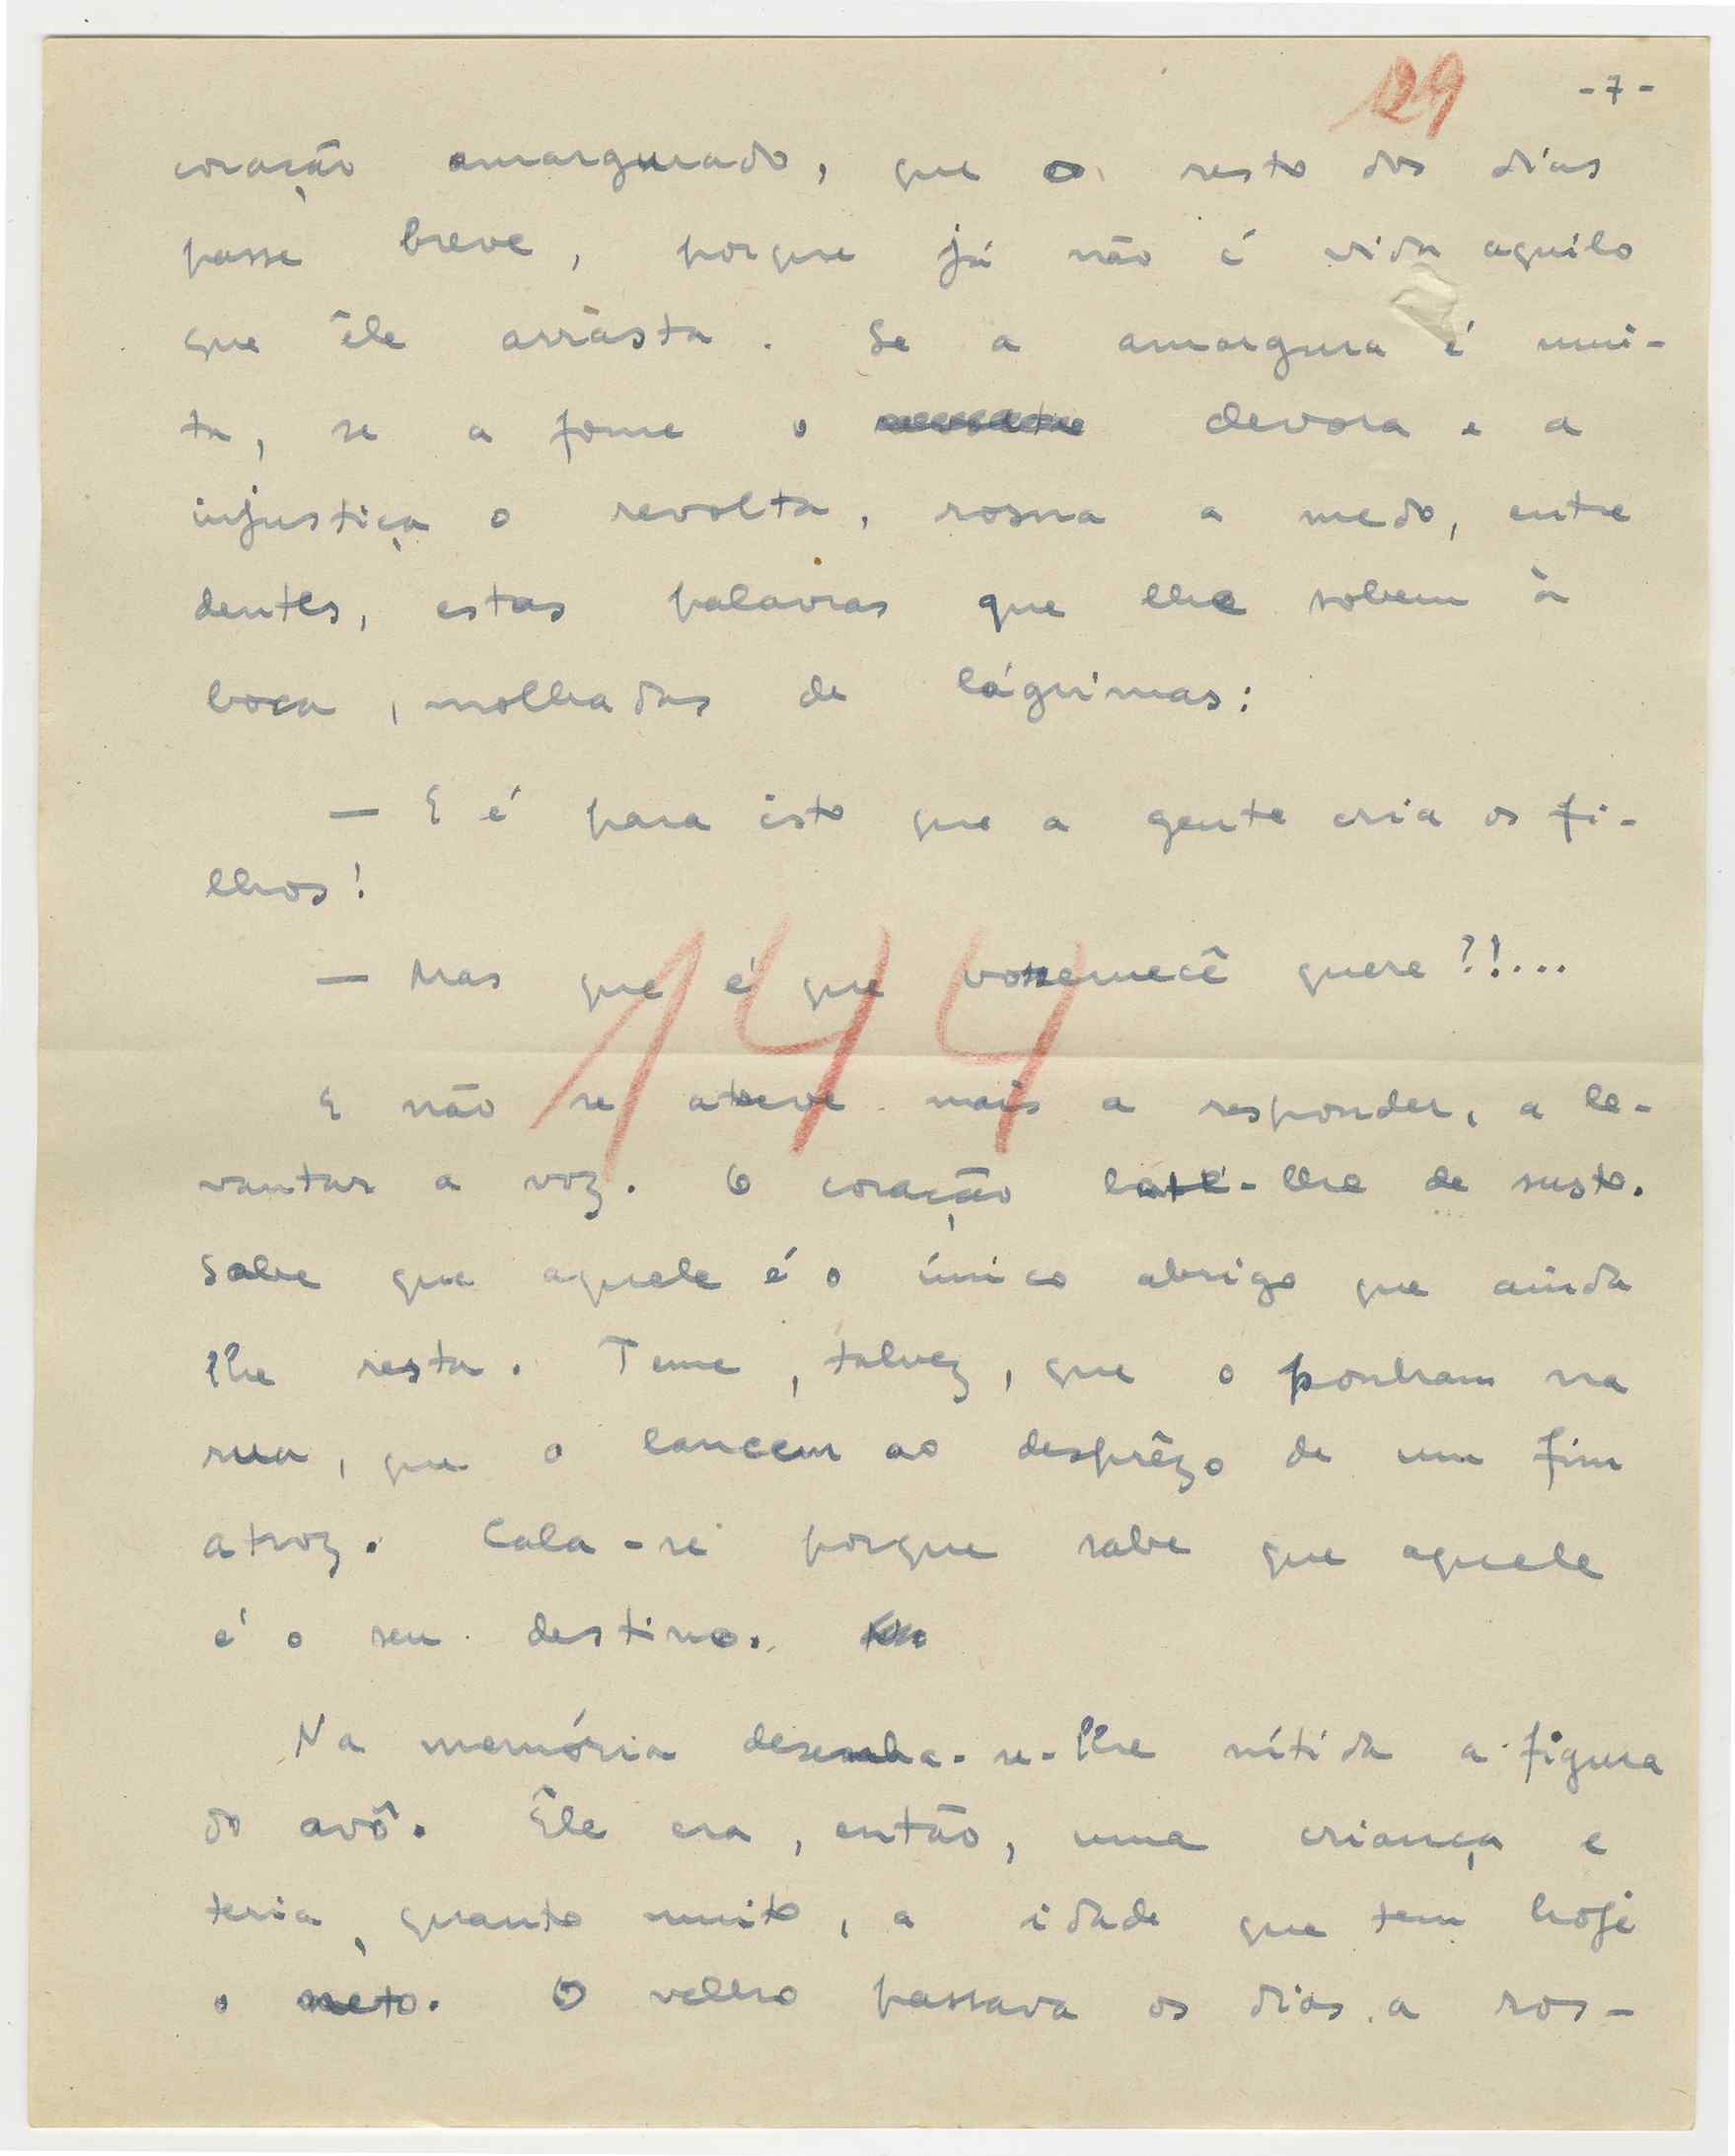 129
-7-
coração amargurado, que o resto dos dias
passe breve, porque já não é vida aquilo
que êle arrasta. Se a amargura é mui-
ta, se a fome o devora e a
injustiça o revolta, rosna a medo, entre
dentes, estas palavras que lhe sobem à
boca, molhadas de lágrimas:
— E é para isto que a gente cria os fi-
lhos!
— Mas que é que vossemecê quere?!...
144
E não se atreve mais a responder, a le-
vantar a voz. O coração late-lhe de susto.
Sabe que aquele é o único abrigo que ainda
lhe resta. Teme, talvez, que o ponham na
rua, que o lancem ao desprêzo de um fim
atroz. Cala-se porque sabe que aquele
é o seu destino.
Na memória desenha-se-lhe nítida a figura
do avô. Êle era, então, uma criança e
teria, quanto muito, a idade que tem hoje
o neto. O velho passava os dias a ros-